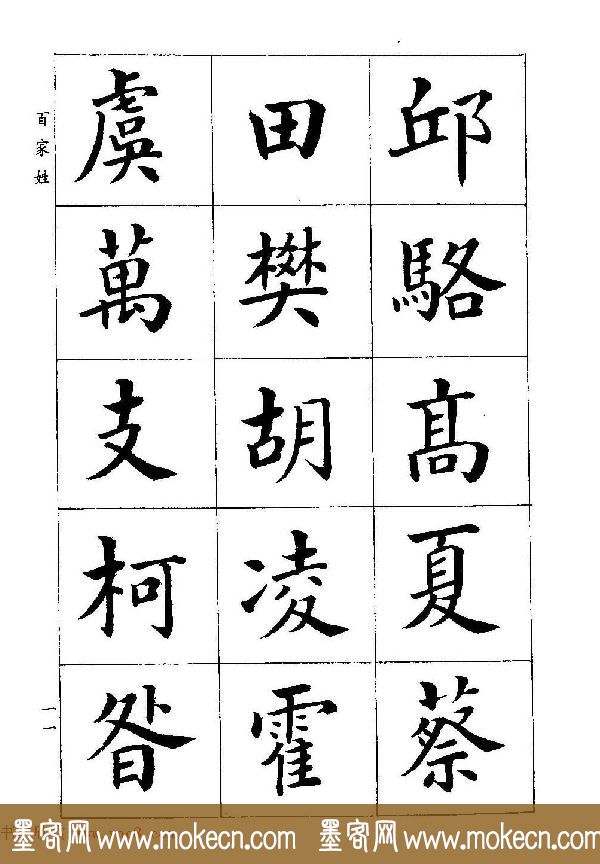 邱駱髙夏蔡
田樊胡凌霍
虞萬支柯昝
百家姓
一一
墨客网 www.mokecn.com 墨客网 www.mokecn.com